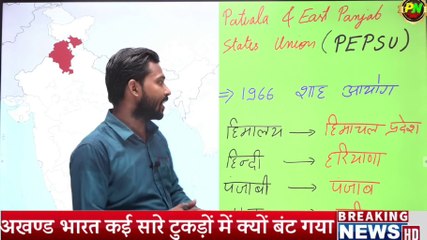 Patiala & East Panjab
States Union (PEPSU)
⇒ 1966 शाह आयोग
हिमालय → हिमाचल प्रदेश
हिन्दी → हरियाणा
पंजाबी → पंजाब
अखण्ड भारत कई सारे टुकड़ों में क्यों बंट गया
BREAKING
NEWS HD
PN